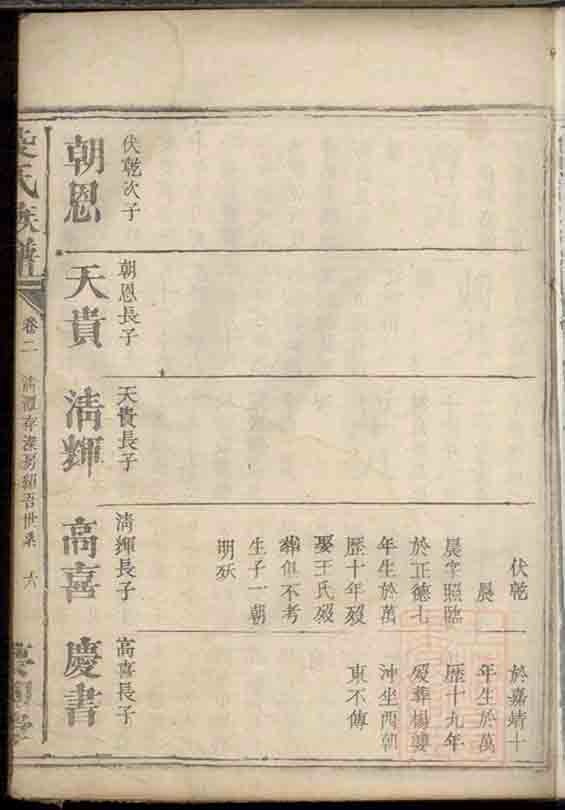 朝恩
伏乾次子
天貴
朝恩長子
清輝
天貴長子
伏乾
晨
晨字照臨
於正德七
年生於萬
歷十年歿
娶王氏歿
葬俱不考
生子一朝
明殀
清輝長子
高喜
於嘉靖十
年生於萬
歷十九年
歿葬楊婁
沖坐酉朝
東不傳
高喜長子
慶書
氏族譜
卷二
清潭存 房 吾世系
六